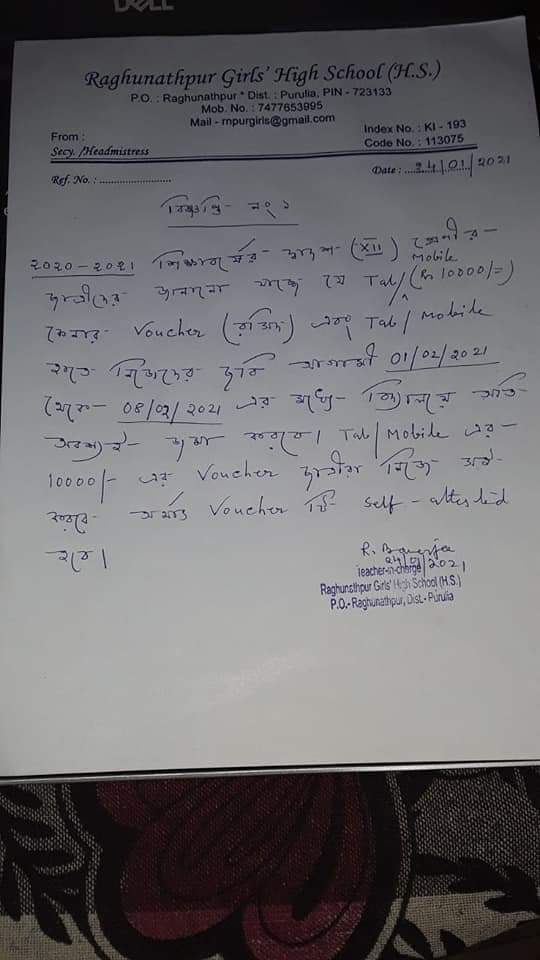 DELL
Raghunathpur Girls' High School (H.S.)
P.O. : Raghunathpur * Dist. : Purulia, PIN - 723133
Mob. No. : 7477653995
Mail - rnpurgirls@gmail.com
From :
Secy. /Headmistress
Index No. : KI - 193
Code No. : 113075
Ref. No. : ........................
Date : 24/01/2021
বিজ্ঞপ্তি - নং ১
২০২০-২০২১ শিক্ষাবর্ষের দ্বাদশ (XII) শ্রেণীর
Mobile
ছাত্রীদের জানানো যাচ্ছে যে Tab/ (Rs 10000/=)
কেনার Voucher (রসিদ) এবং Tab/Mobile
হাতে নিজেদের ছবি আগামী 01/02/2021
থেকে 08/02/2021 এর মধ্যে বিদ্যালয়ে অতি
অবশ্যই জমা করবে। Tab/Mobile এর
10000/- এর Voucher ছাত্রীরা নিজে সই
করবে অর্থাৎ Voucher টি self-attested
হবে।
R. Banerjee
24/01/2021
Teacher-in-charge
Raghunathpur Girls' High School (H.S.)
P.O.- Raghunathpur, Dist.- Purulia